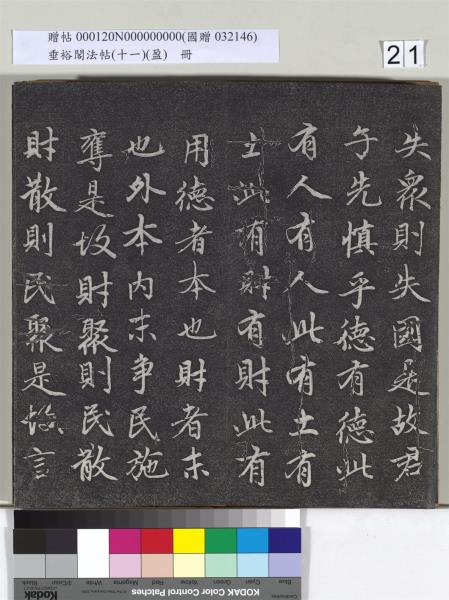 贈帖 000120N000000000(國贈 032146)
垂裕閣法帖(十一)(盈) 冊
21
失眾則失國是故君
子先慎乎德有德此
有人有人此有土有
土此有財有財此有
用德者本也財者末
也外本內末爭民施
奪是故財聚則民散
財散則民聚是故言
Kodak
KODAK Color Control Patches
Blue
Cyan
Green
Yellow
Red
Magenta
White
3/Color
Black